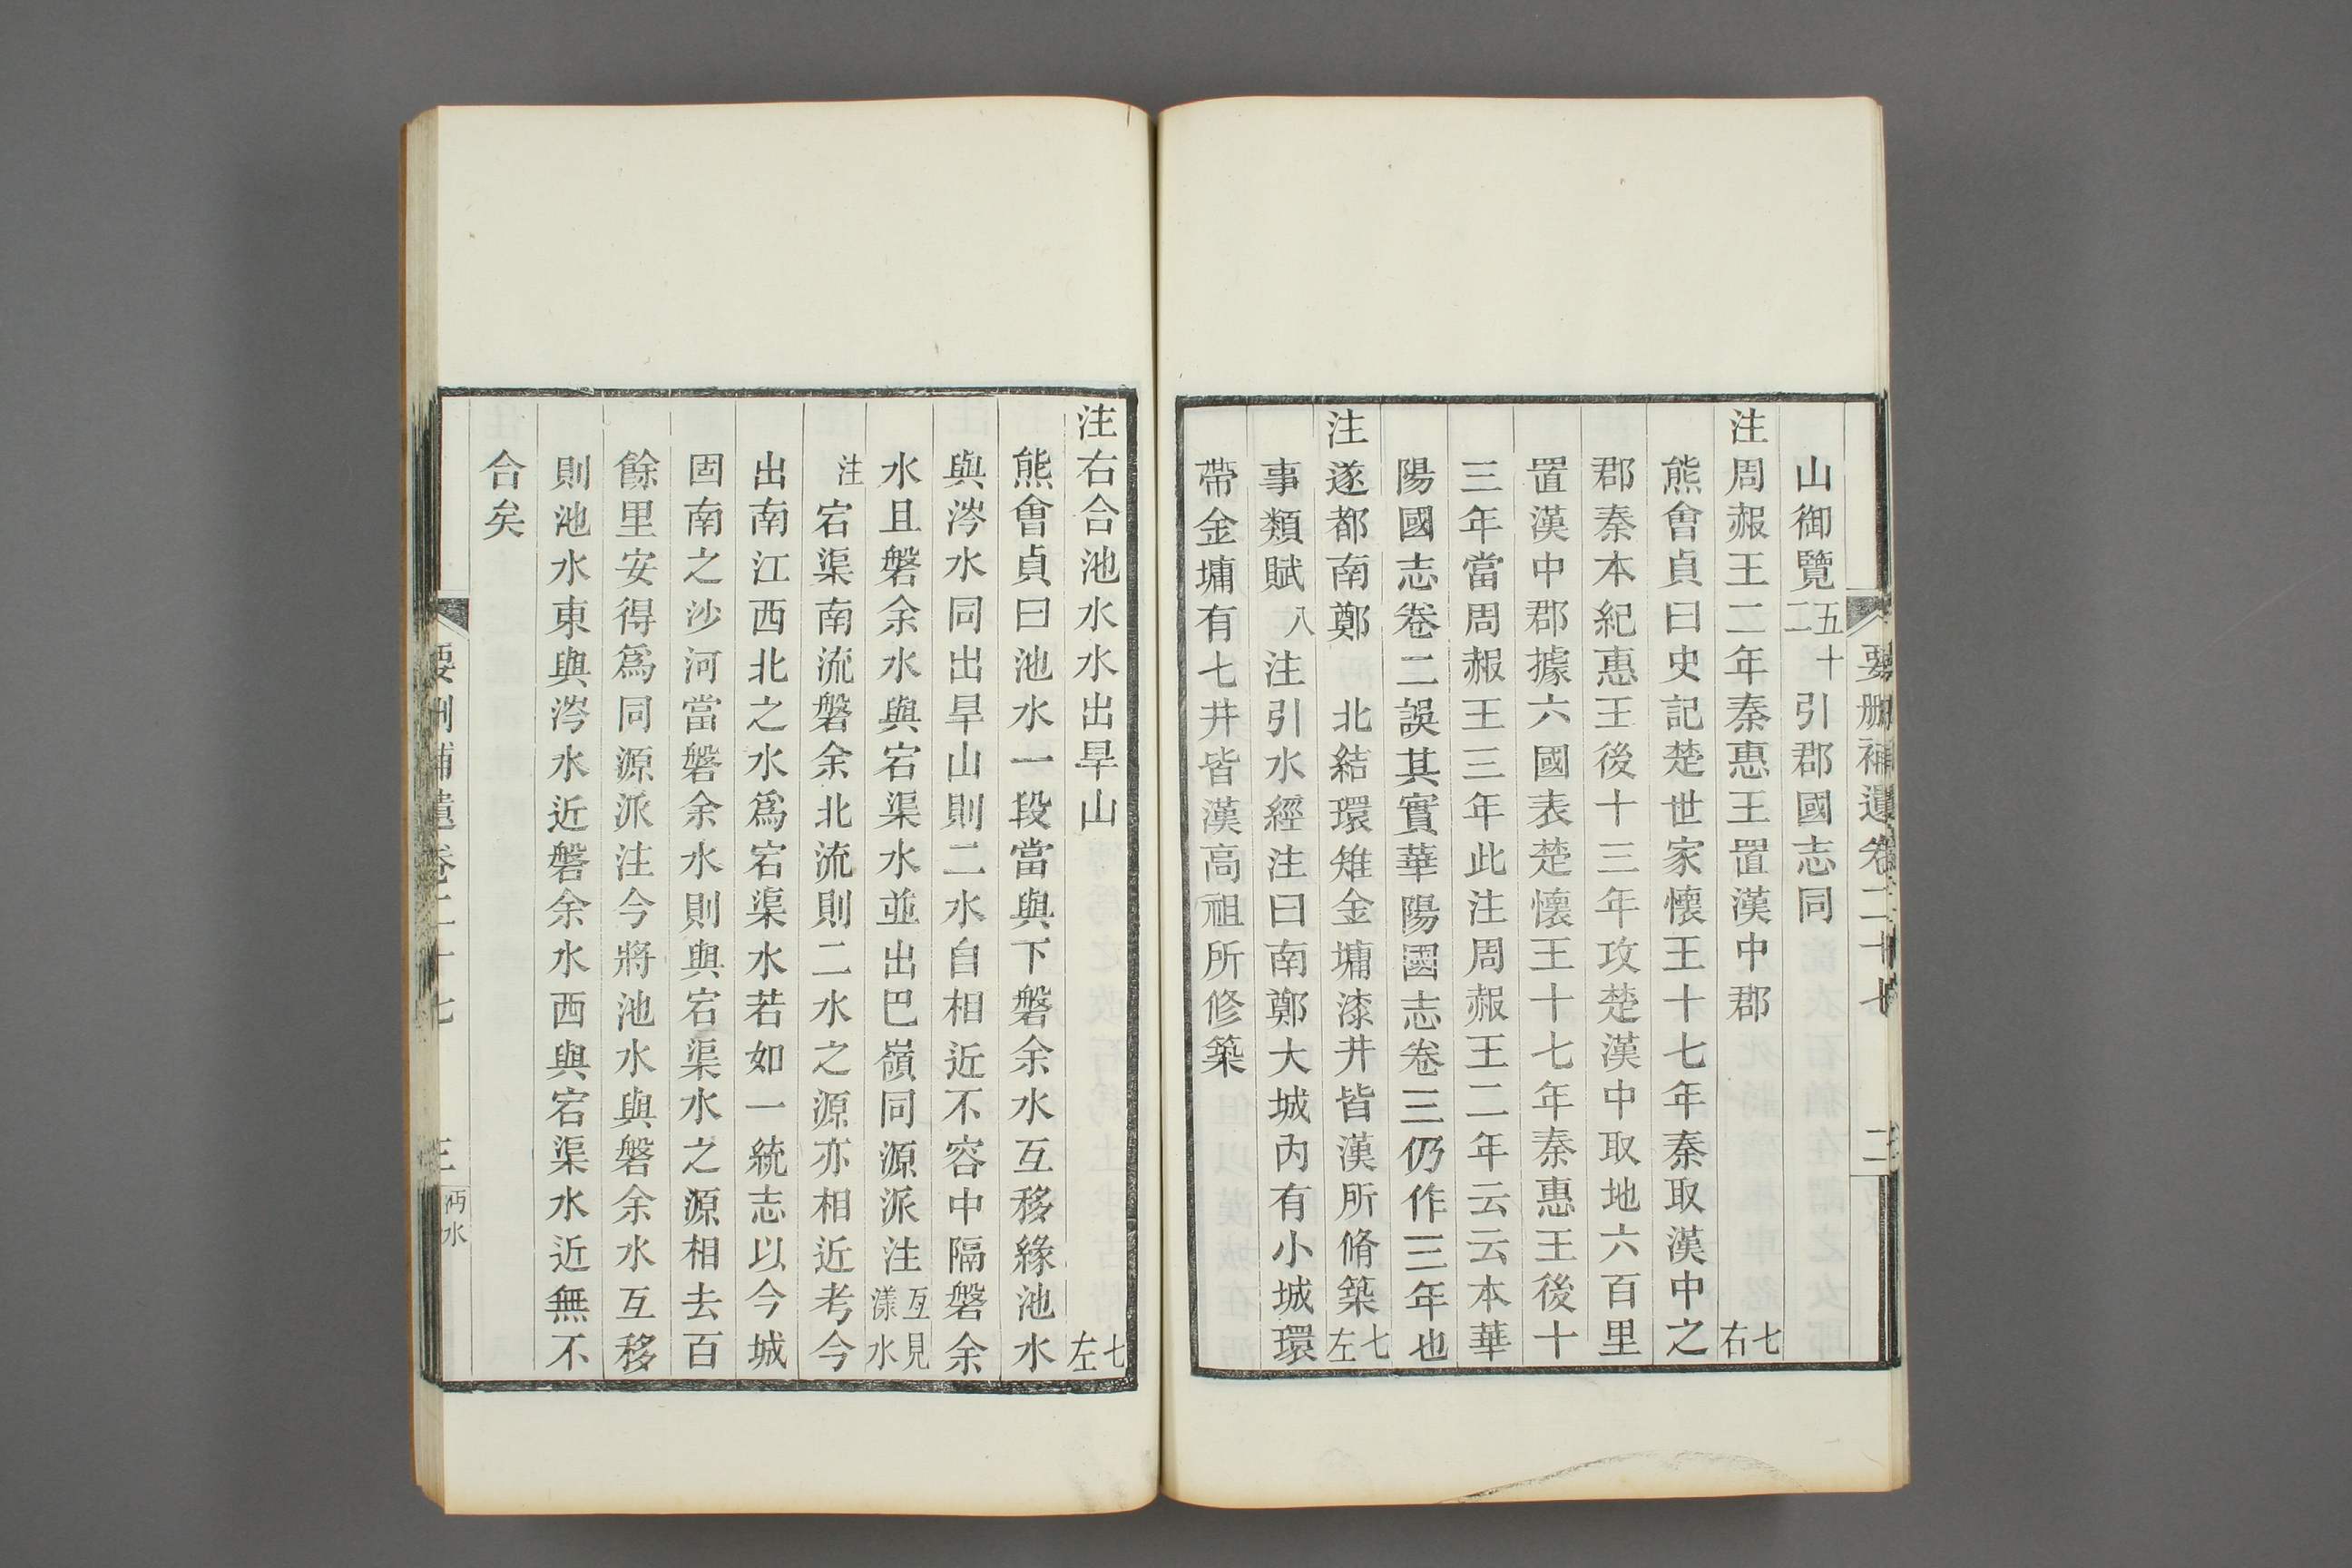 要刪補遺卷二十七
二
山御覽五十二引郡國志同
注周赧王二年秦惠王置漢中郡七右
熊會貞曰史記楚世家懷王十七年秦取漢中之
郡秦本紀惠王後十三年攻楚漢中取地六百里
置漢中郡據六國表楚懷王十七年秦惠王後十
三年當周赧王三年此注周赧王二年云云本華
陽國志卷二誤其實華陽國志卷三仍作三年也
注遂都南鄭 北結環雉金墉漆井皆漢所脩築七左
事類賦八注引水經注曰南鄭大城內有小城環
帶金墉有七井皆漢高祖所修築
注右合池水水出旱山七左
熊會貞曰池水一段當與下磐余水互移緣池水
與涔水同出旱山則二水自相近不容中隔磐余
水且磐余水與宕渠水並出巴嶺同源派注互見漾水
注宕渠南流磐余北流則二水之源亦相近考今
出南江西北之水爲宕渠水若如一統志以今城
固南之沙河當磐余水則與宕渠水之源相去百
餘里安得爲同源派注今將池水與磐余水互移
則池水東與涔水近磐余水西與宕渠水近無不
合矣
要刪補遺卷二十七
三
沔水